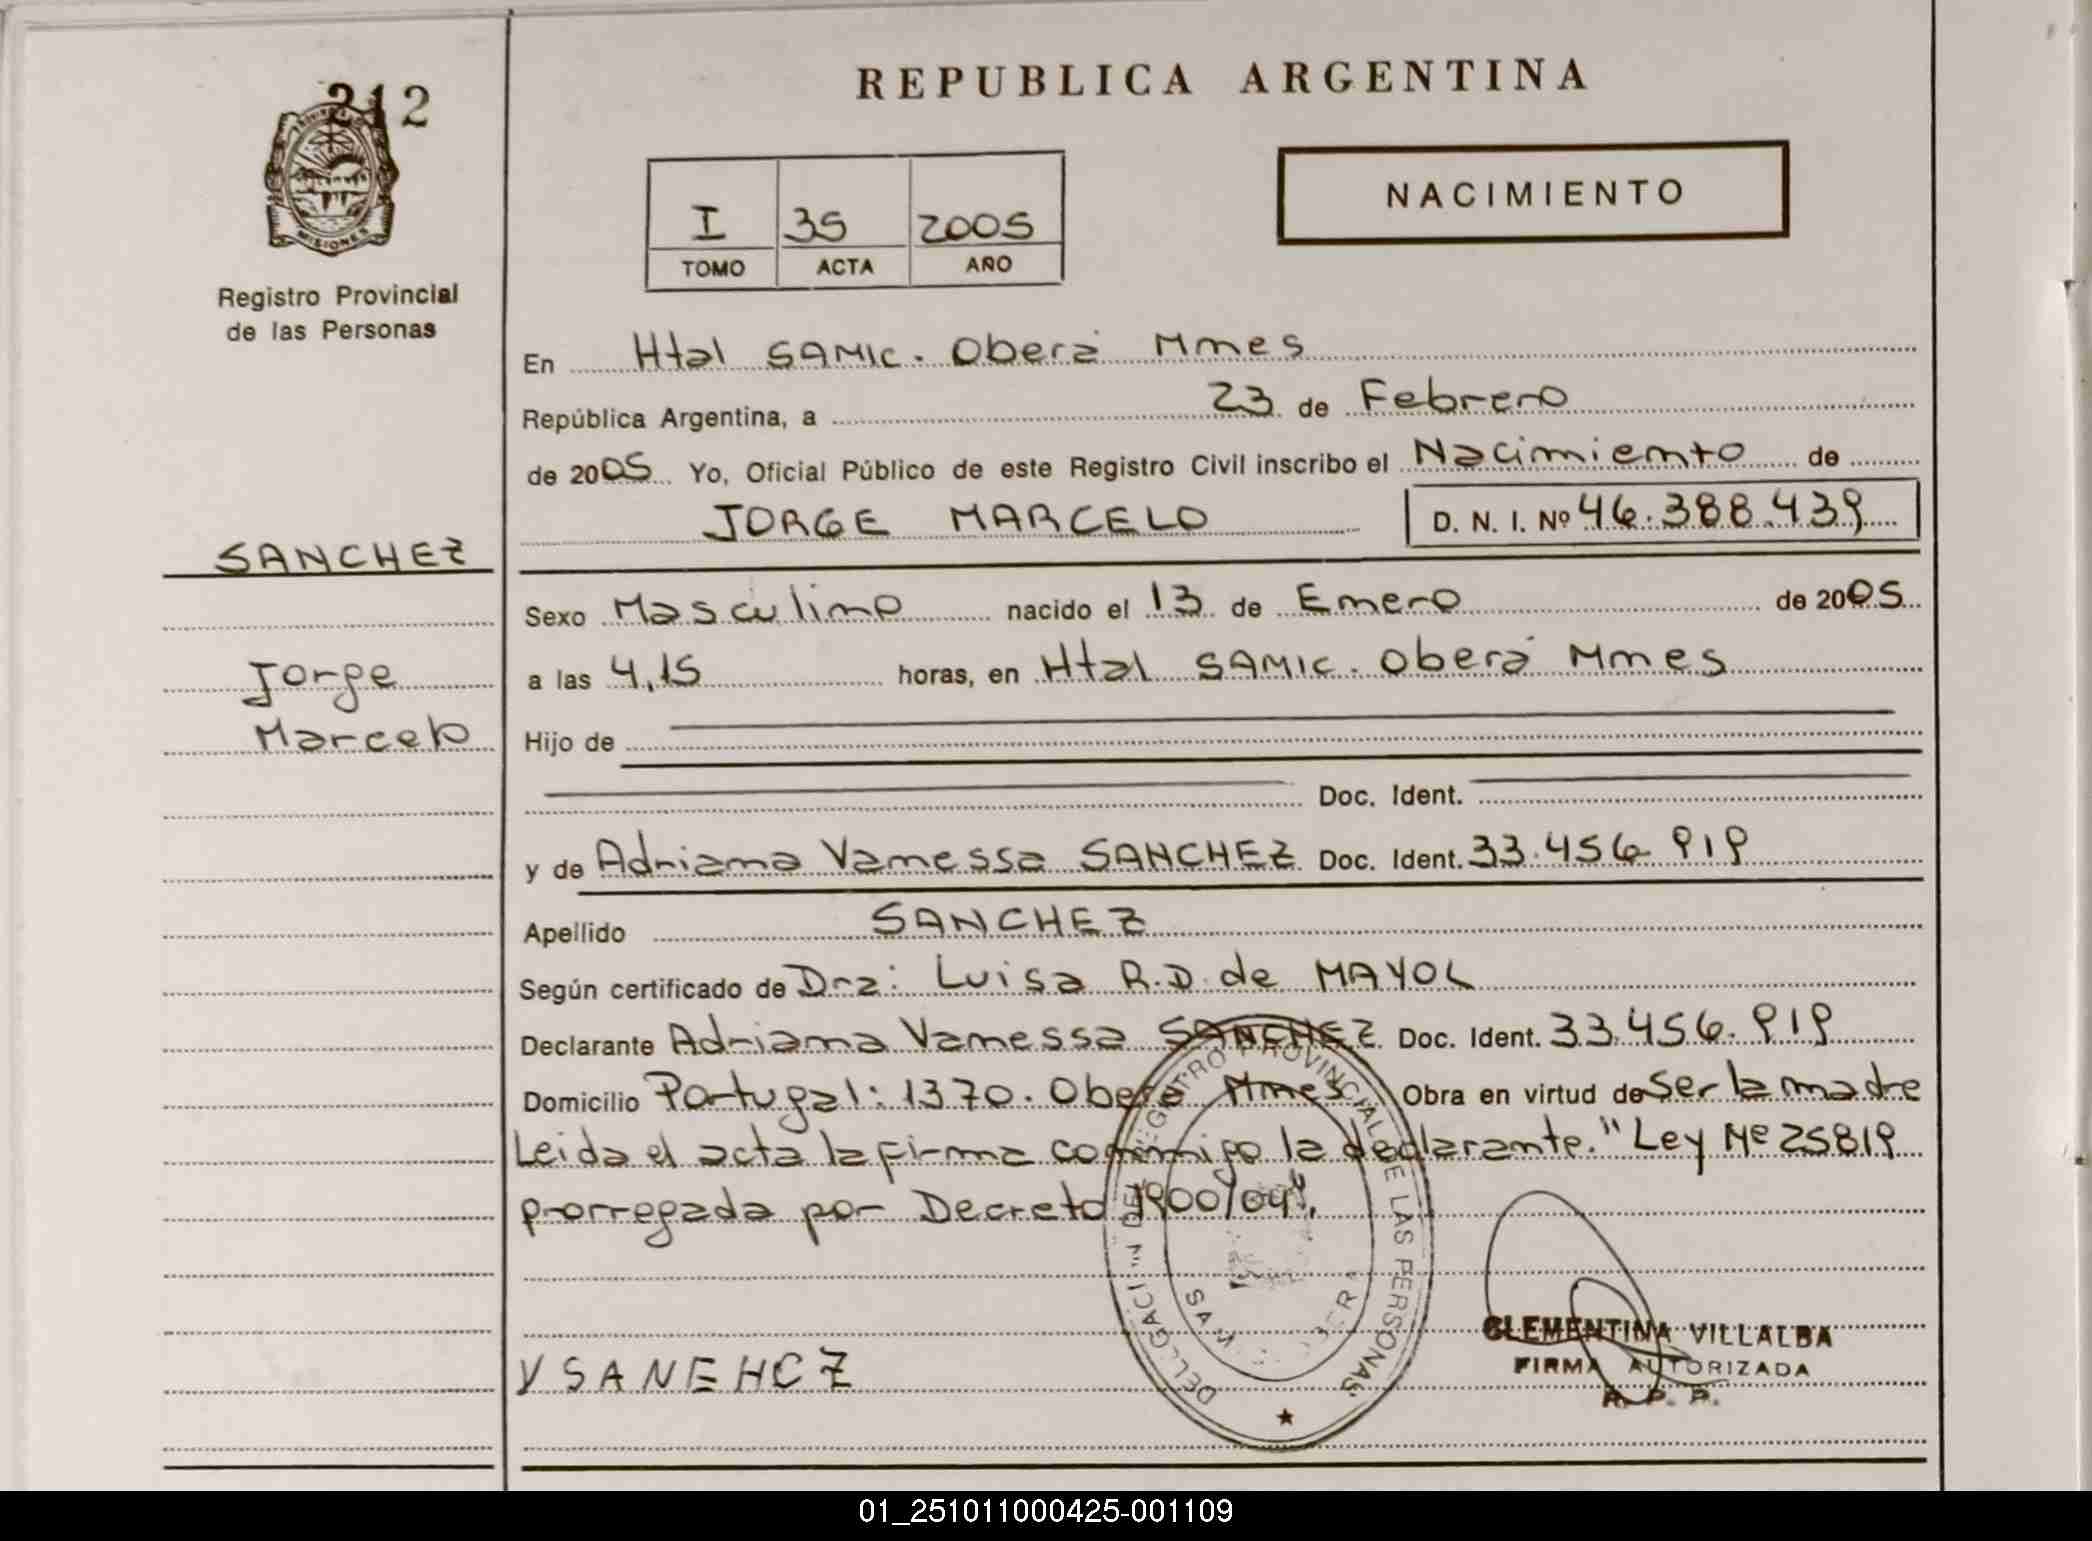 212
MISIONES
Registro Provincial
de las Personas
SANCHEZ
Jorge
Marcelo
REPUBLICA ARGENTINA
I 35 2005
TOMO ACTA AÑO
NACIMIENTO
En Htal SAMIC. Oberá Mnes
República Argentina, a 23 de Febrero
de 2005 Yo, Oficial Público de este Registro Civil inscribo el Nacimiento de
JORGE MARCELO D. N. I. Nº 46.388.439
Sexo Masculino nacido el 13 de Enero de 2005
a las 4,15 horas, en Htal SAMIC. Oberá Mnes
Hijo de
Doc. Ident.
y de Adriana Vanessa SANCHEZ Doc. Ident. 33.456.919
Apellido SANCHEZ
Según certificado de Dra: Luisa R.D. de MAYOL
Declarante Adriana Vanessa SANCHEZ Doc. Ident. 33.456.919
Domicilio Portugal: 1370. Oberá Mnes Obra en virtud de Ser la madre
Leida el acta la firma conmigo la declarante. "Ley Nº 25819
prorregada por Decreto 1900/04".
V SANEHCZ
REGISTRO PROVINCIAL DE LAS PERSONAS
CLEMENTINA VILLALBA
FIRMA AUTORIZADA
R. P. P.
01_251011000425-001109